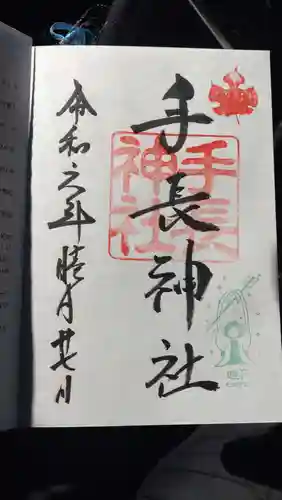 手長神社
手長
神社
令和六年睦月廿七日